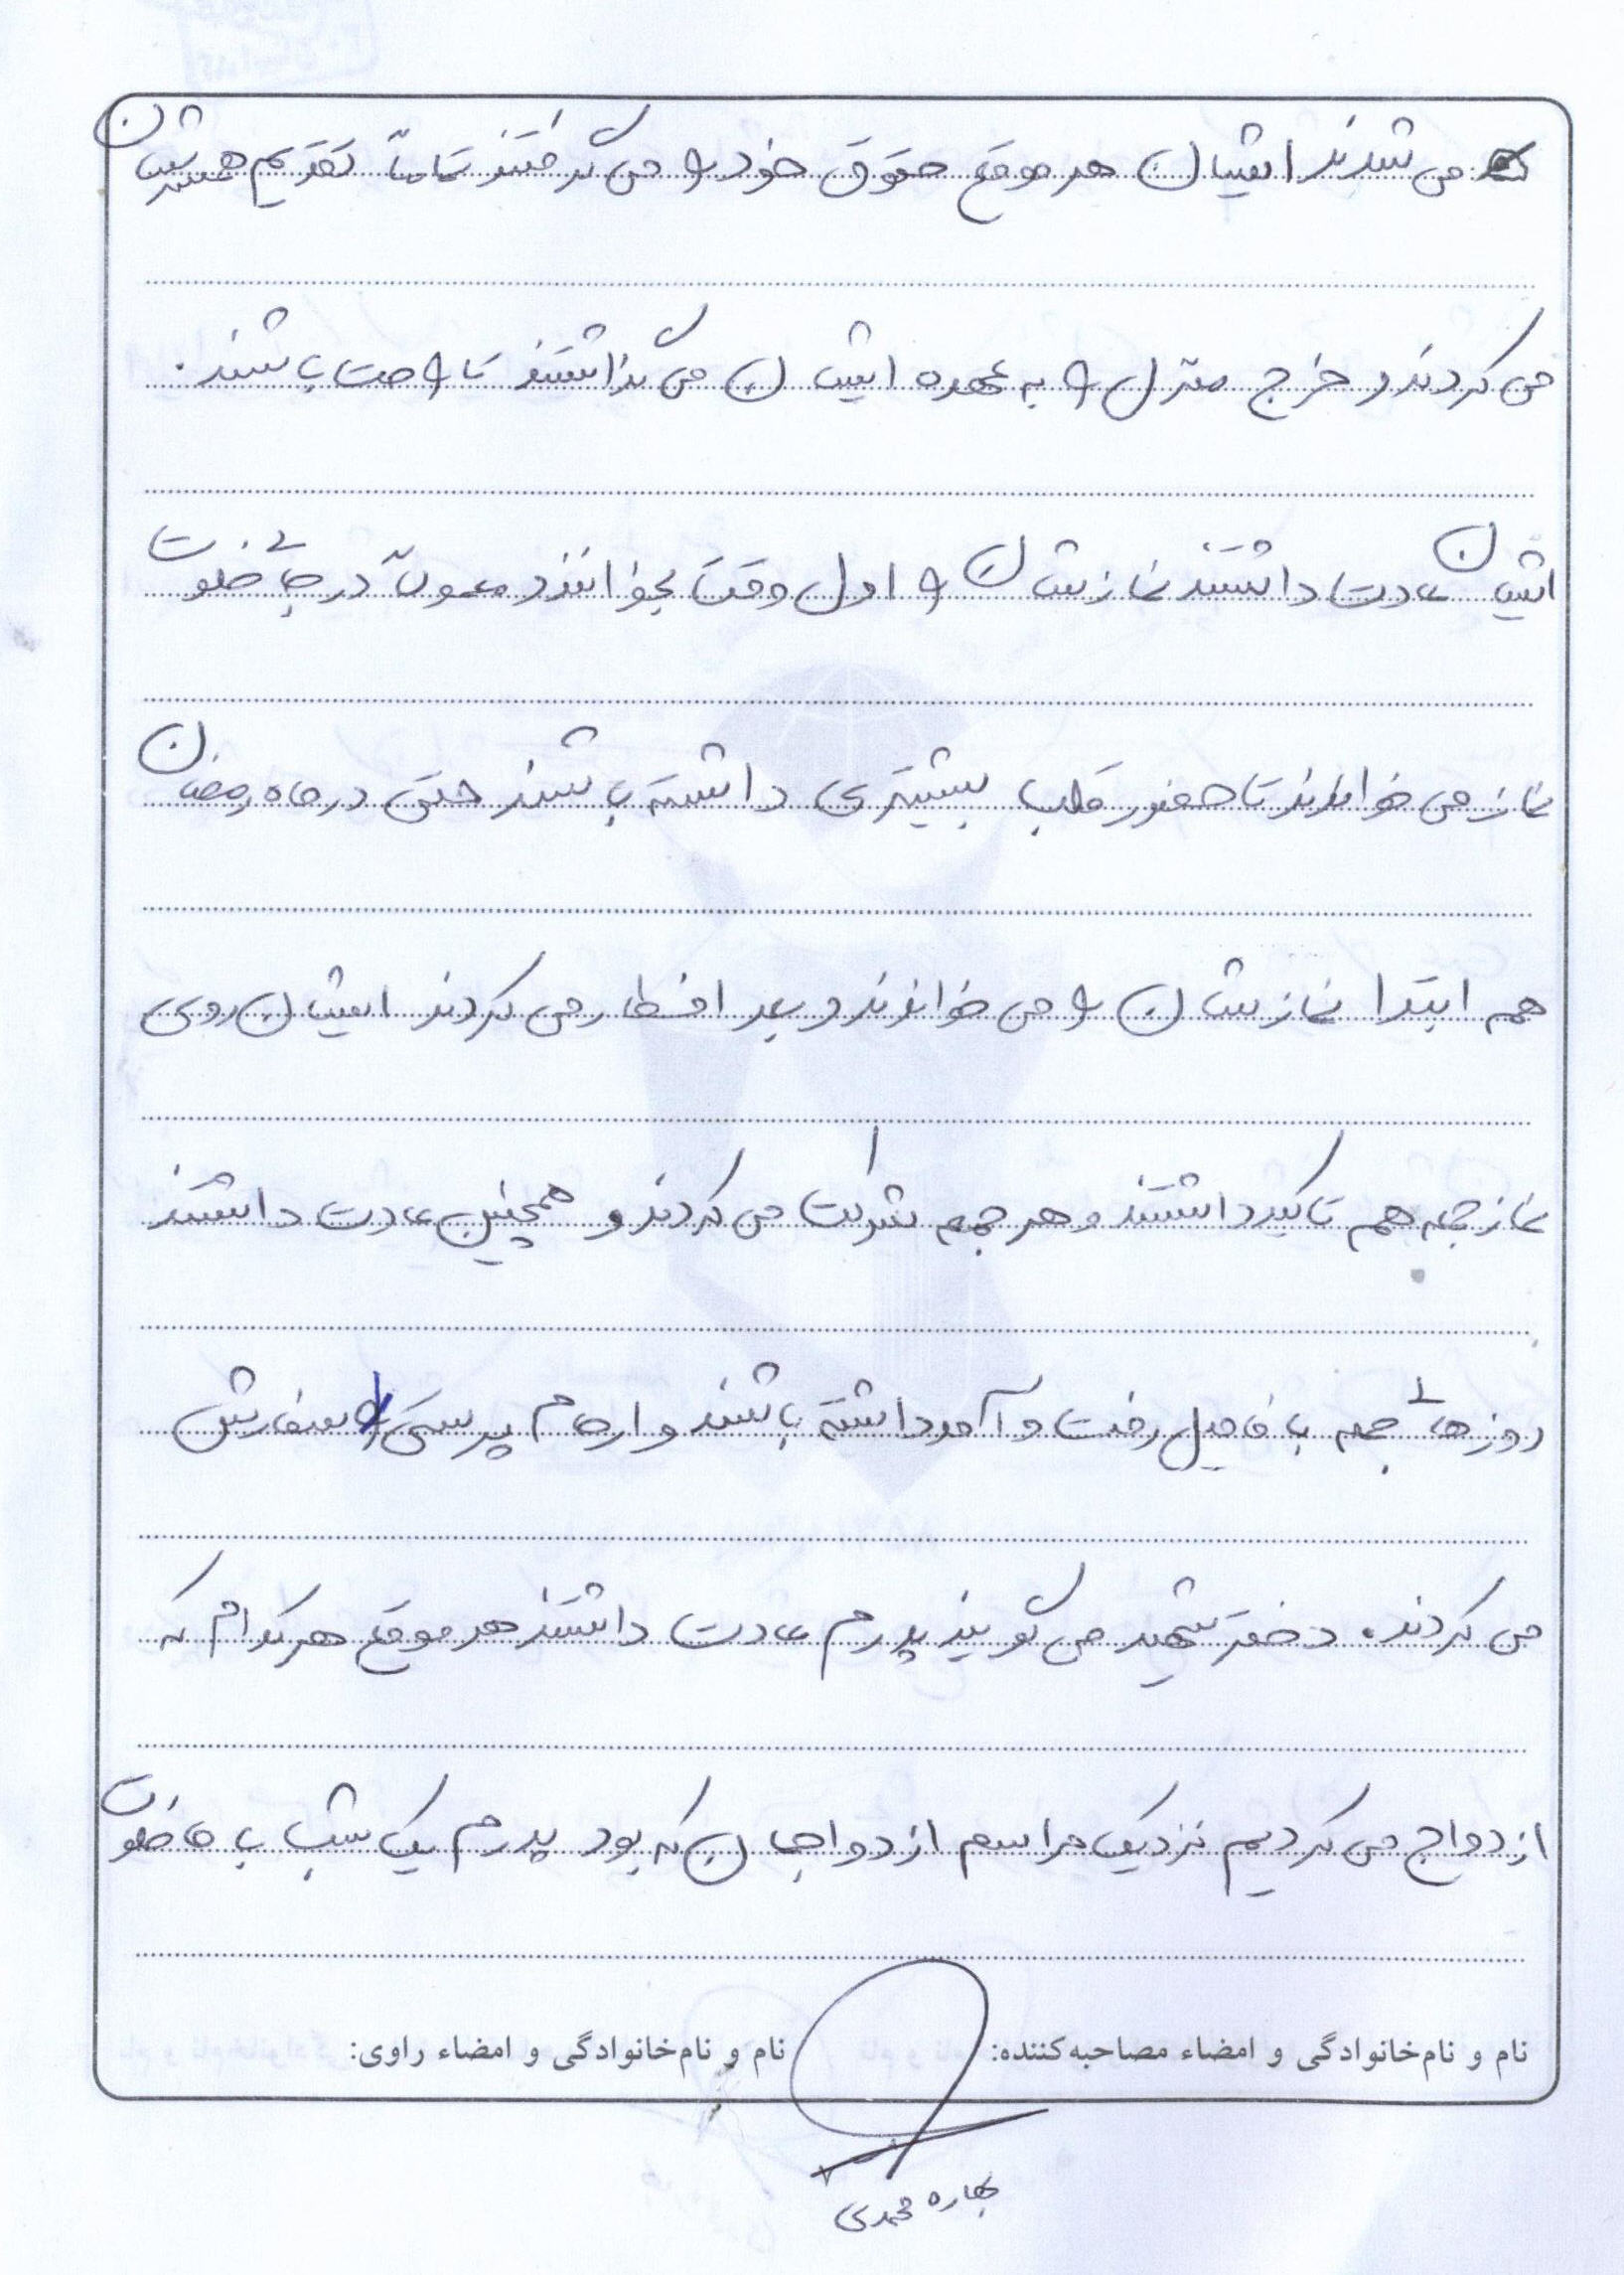 می شدند ایشان هر موقع حقوق خود را می گرفتند تماماً تقدیم همسرشان
می کردند و خرج منزل را به عهده ایشان می گذاشتند تا راحت باشند.
ایشان عادت داشتند نمازشان را اول وقت بخوانند و معمولاً در جای خلوت
نماز می خواندند تا حضور قلب بیشتری داشته باشند حتی در ماه رمضان
هم ابتدا نمازشان را می خواندند و بعد افطار می کردند ایشان روی
نماز جمعه هم تاکید داشتند و هر جمعه شرکت می کردند و همچنین عادت داشتند
روزهای جمعه با فامیل رفت و آمد داشته باشند و ارحام پرستی را سفارش
می کردند. دختر شهید می گویند پدرم عادت داشتند هر موقع هر کدام که
ازدواج می کردیم نزدیک مراسم ازدواجمان که بود پدرم یک شب با ما خلوت
نام و نام‌خانوادگی و امضاء مصاحبه‌کننده: نام و نام‌خانوادگی و امضاء راوی:
بهاره محمدی